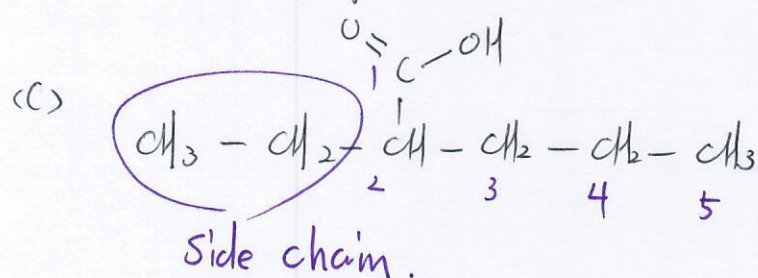 O OH
1 C
(C) CH3 - CH2 - CH - CH2 - CH2 - CH3
2 3 4 5
Side chain.